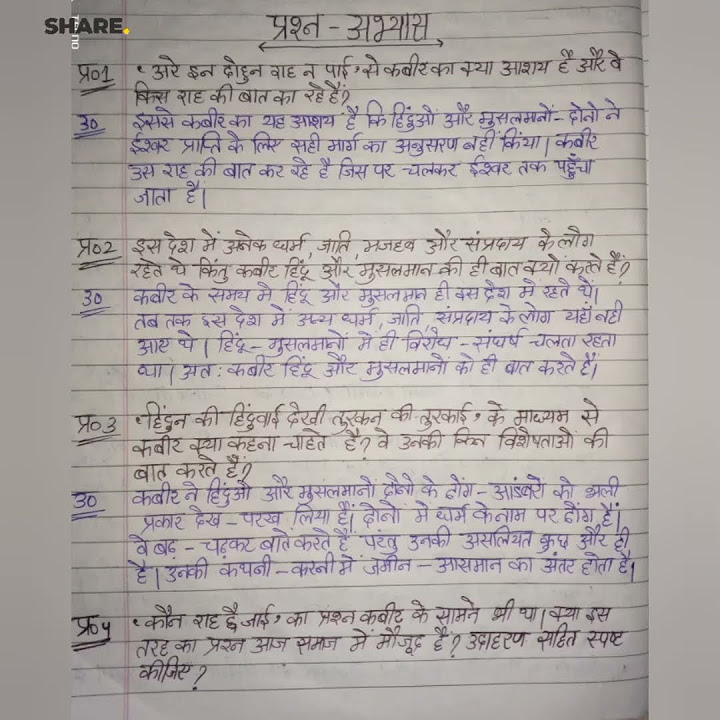 SHARE.
प्रश्न - अभ्यास
प्र०1 'अरे इन दोहुन राह न पाई' से कबीर का क्या आशय है और वे
किस राह की बात का रहे हैं?
उ0 इससे कबीर का यह आशय है कि हिंदुओं और मुसलमानों - दोनो ने
ईश्वर प्राप्ति के लिए सही मार्ग का अनुसरण नहीं किया। कबीर
उस राह की बात कर रहे है जिस पर चलकर ईश्वर तक पहुँचा
जाता है।
प्र०2 इस देश में अनेक धर्म, जाति, मजहब और संप्रदाय के लोग
रहते थे किंतु कबीर हिंदू और मुसलमान की ही बात क्यों करते हैं?
उ0 कबीर के समय मे हिंदू और मुसलमान ही इस देश मे रहते थे।
तब तक इस देश में अन्य धर्म, जाति, संप्रदाय के लोग यहाँ नही
आए थे। हिंदू - मुसलमानों में ही विरोध - संघर्ष चलता रहता
था। अत: कबीर हिंदू और मुसलमानों की ही बात करते हैं।
प्र०3 'हिंदुन की हिंदुवाई देखी तुरकन की तुरकाई' के माध्यम से
कबीर क्या कहना चाहते है? वे उनकी किन विशेषताओं की
बात करते है?
उ0 कबीर ने हिंदुओ और मुसलमानों दोनो के ढोंग - आडंबरो को भली
प्रकार देख - परख लिया है। दोनो मे धर्म के नाम पर ढोंग है।
वे बढ़ - चढ़कर बाते करते हैं परंतु उनकी असलियत कुछ और ही
है। उनकी कथनी - करनी में जमीन - आसमान का अंतर होता है।
प्र०4 'कौन राह ह्वै जाई' का प्रश्न कबीर के सामने भी था। क्या इस
तरह का प्रश्न आज समाज में मौजूद है? उदाहरण सहित स्पष्ट
कीजिए?